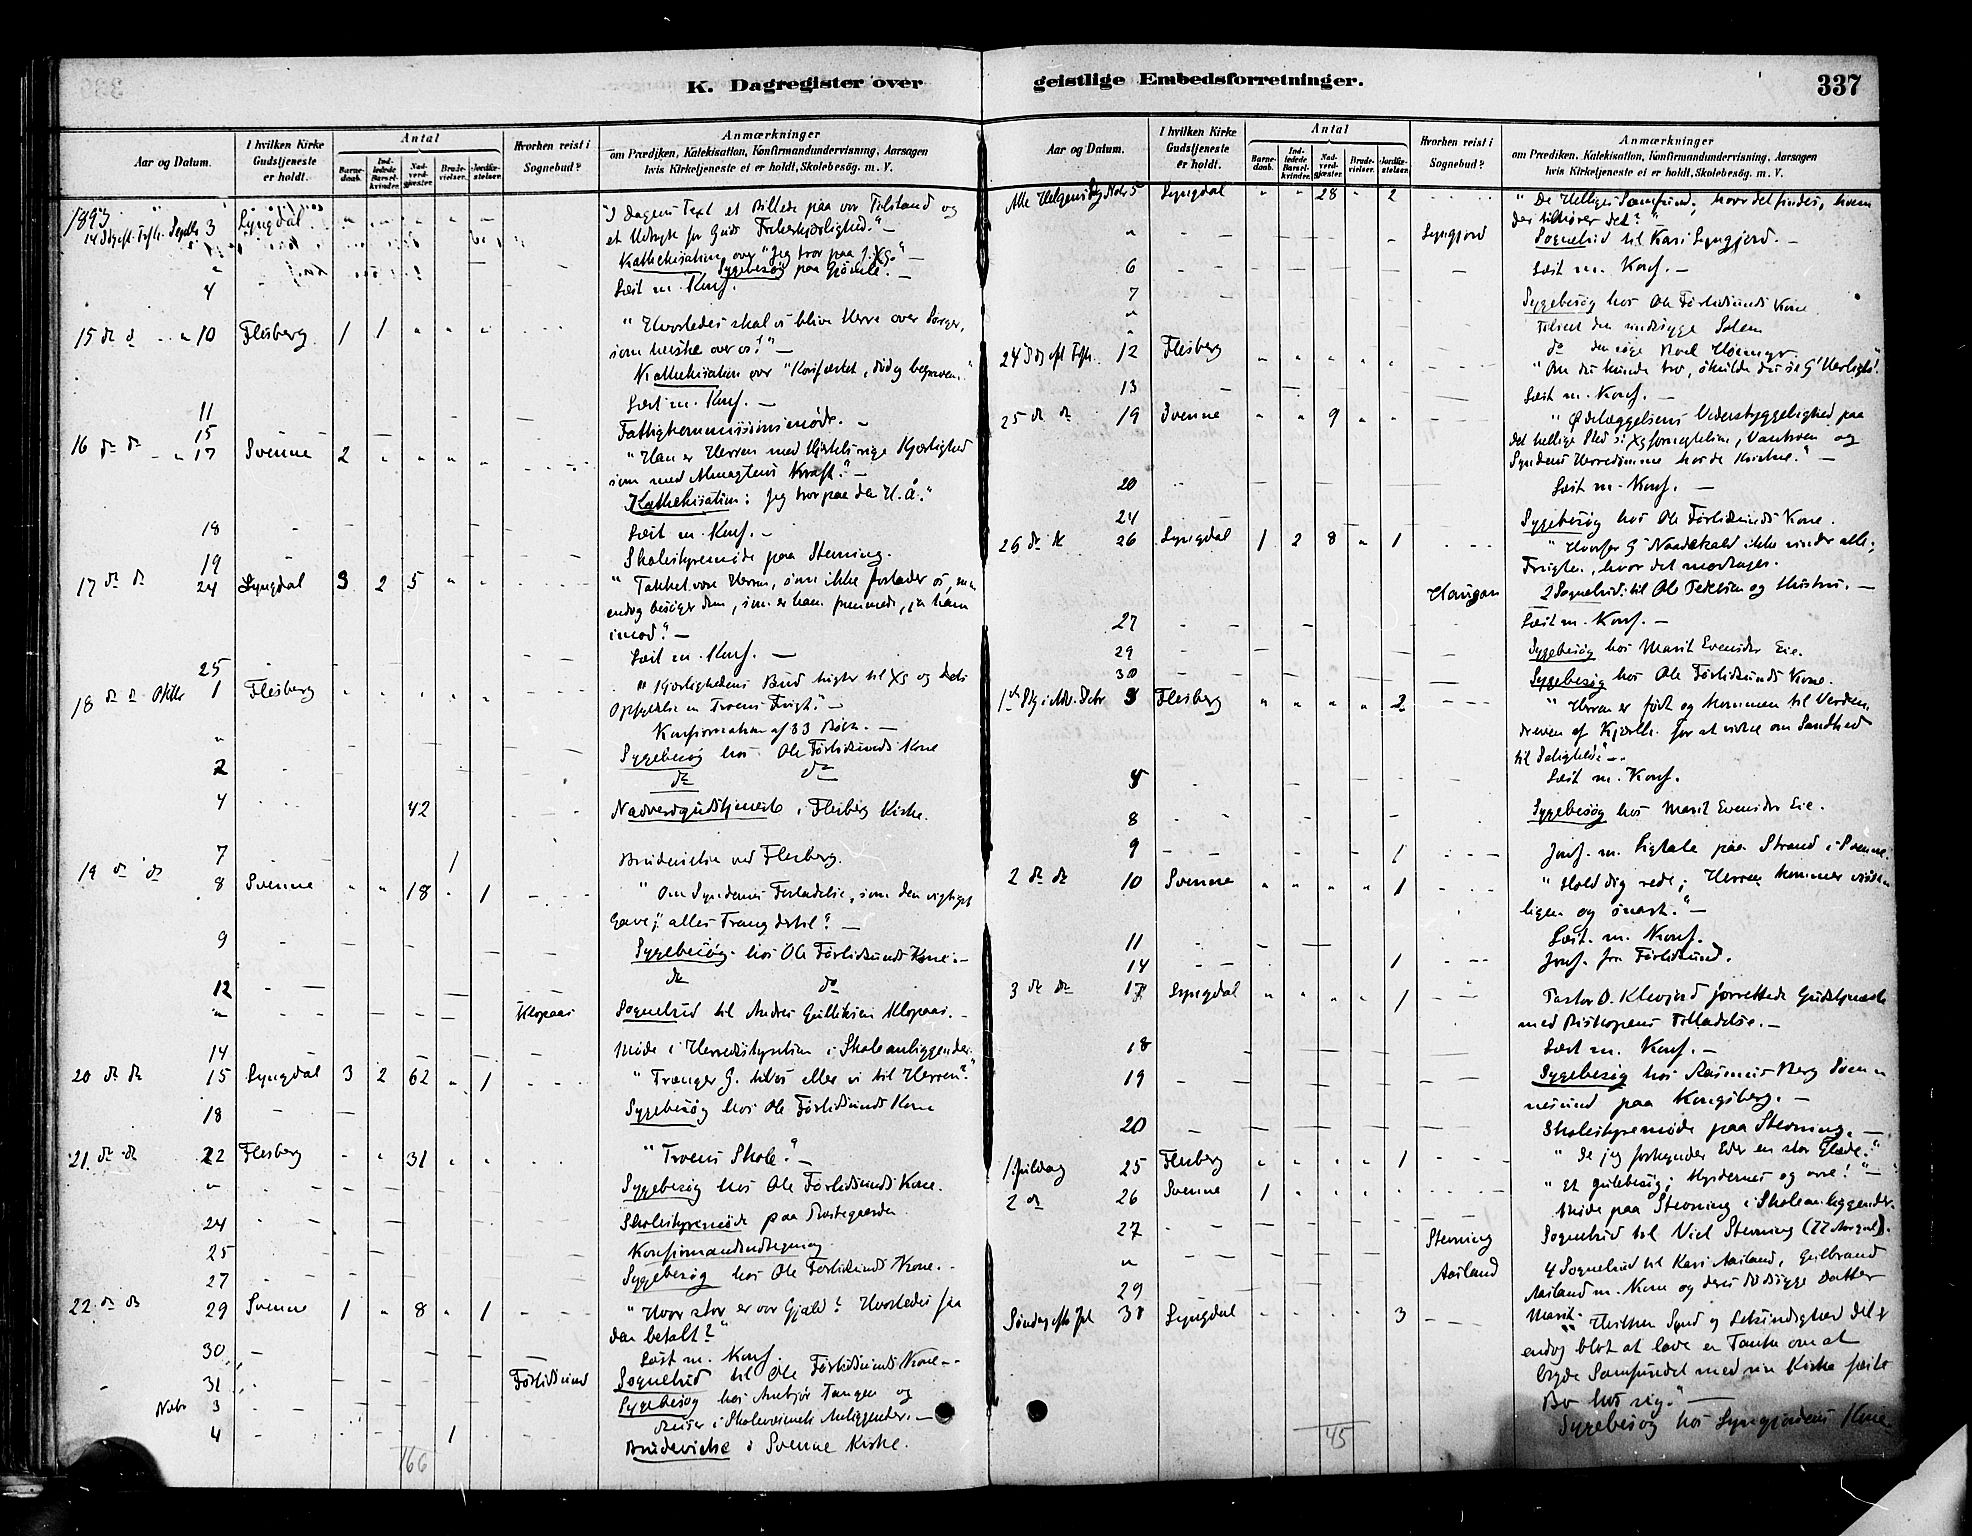 K. Dagregister over
Aar og Datum.
I hvilken Kirke Gudstjeneste er holdt.
Antal
Barnedaab.
Indledede Barselkvinder.
Nadverdgjæster.
Brudevielser.
Jordfæstelser.
Hvorhen reist i Sognebud?
Anmærkninger
om Prædiken, Katekisation, Konfirmandundervisning, Aarsagen
hvis Kirketjeneste ei er holdt, Skolebesøg. m. V.
1893
Septbr 3 Lyngdal "I Dagens Text et Billede paa vor Tilstand og
et Udtryk for Guds Frelserkjærlighed." —
Kathekisation over "Jeg tror paa J. Xg." —
Sygebesøg paa —
4 Læst m. Konf.
15 do do 10 Flesberg 1 1 " " " "Hvorledes skal vi blive Herre over Sorger,
som herske over os?" —
Kathekisation over "Korsfæstet, død og begraven."
11 Læst m. Konf. —
15 Fattigkommissionsmøde. —
16 do do 17 Svenne 2 " " " " "Han er Herren med Kjærlighed
som med Almagtens Kraft." —
Kathekisation: Jeg tror paa den H. Å."
18 Læst m. Konf. —
19 Skolestyremøde paa Stevning.
17 do do 24 Lyngdal 3 2 5 " " "Takket være Herren, som ikke forlader os, men
endog besøger dem, som er ham fremmede, ja ham
imod." —
25 Læst m. Konf. —
18 do do Oktbr 1 Flesberg " " " " " "Kjærlighedens Bud sigter til Xg og dets
Opfyldelse en Troens Frugt." —
Konfirmation af 33 Børn. —
" Sygebesøg hos Ole Førlidsunds Kone
2 do do
4 42 Nadverdgudstjeneste i Flesberg Kirke.
7 1 Brudevielse ved Flesberg.
19 do do 8 Svenne " " 18 " 1 "Om Syndernes Forladelse, som den vigtigst
Gave; alles Trang dertil." —
9 Sygebesøg hos Ole Førlidsunds Kone. —
12 do do
" Klopaas Sognebud til Andres Gulliksen Klopaas. —
14 Møde i Herredsstyrelsen i Skoleanliggender.
20 do do 15 Lyngdal 3 2 62 " 1 "Trænger G. til os eller vi til Herren?"
18 Sygebesøg hos Ole Førlidsunds Kone
21 do do 22 Flesberg " " 31 " " "Troens Skole." —
" Sygebesøg hos Ole Førlidsunds Kone.
24 Skolestyremøde paa Prestegaarden
25 Konfirmandindtegning
27 Sygebesøg hos Ole Førlidsunds Kone. -
22 do do 29 Svenne 1 " 8 " 1 "Hvor stor er vor Gjæld? Hvorledes faa
den betalt?"
30 Læst m. Konf.
31 Førlidsund Sognebud til Ole Førlidsunds Kone -
Novbr 3 Sygebesøg hos Anbjør Tangen og
Reiser i Skolevæsenets Anliggender. —
4 1 Brudevielse i Svenne Kirke.
166
geistlige Embedsforretninger.
337
Aar og Datum.
I hvilken Kirke Gudstjeneste er holdt.
Antal
Barnedaab.
Indledede Barselkvinder.
Nadverdgjæster.
Brudevielser.
Jordfæstelser.
Hvorhen reist i Sognebud?
Anmærkninger
om Prædiken, Katekisation, Konfirmandundervisning, Aarsagen
hvis Kirketjeneste ei er holdt, Skolebesøg. m. V.
Alle Helgensdag Nobr 5 Lyngdal " " 28 " 2 "De Helliges Samfund, hvor det findes, hvem
der tilhører det?"
" Lyngjord Sognebud til Kari Lyngjord. —
6 Læst m. Konf. —
7 Sygebesøg hos Ole Førlidsunds Kone
" Tilseet den sindssyge
" do den syge
24 Sdg eft Trefh. 12 Flesberg " " " " " "Om du kunde tro, skulde du se G's Herlighed."
13 Læst m. Konf. —
25 do do 19 Svenne " " 9 " " "Ødelæggelsens Vederstyggelighed paa
det hellige Sted: Xgfornegtelsen, Vantroen og
Syndens Herredømme hos de Kristne." —
20 Læst m. Konf. —
24 Sygebesøg hos Ole Førlidsunds Kone.
26 do do 26 Lyngdal 1 2 8 " 1 "Hvorfor G's Naadekald ikke vinder alle;
Frugten, hvor det modtages.
Haugan 2 Sognebud: til Ole Pedersen og Hustru. —
27 Læst m. Konf. —
29 Sygebesøg hos Marit Evensdr Eie.
30 Sygebesøg hos Ole Førlidsunds Kone.
1ste Sdg i Adv. Debr 3 Flesberg " " " " 2 "Herren er født og kommen til Verden
dreven af Kjærlh. for at vidne om Sandhed
til Salighed." —
Læst m. Konf.
8 Sygebesøg hos Marit Evensdr Eie.
9 1 Jordf. m. Ligtale paa Strand i Svenne.
2 do do 10 Svenne " " " " 1 "Hold dig rede; Herren kommer visse-
ligen og snart." —
11 Læst. m. Konf.
14 1 Jordf. fra Førlidsund.
3 do do 17 Lyngdal " " " " 1 Pastor O. Klevjord forrettede Gudstjeneste
med Biskopens Tilladelse. —
18 Læst m. Konf. —
19 Sygebesøg hos Rasmus Berg Sven-
nesund paa Kongsberg. —
20 Skolestyremøde paa Stevning. —
1. Juledag 25 Flesberg " " " " 1 "Se jeg forkynder Eder en stor Glæde." —
2 do 26 Svenne 1 " " " " "Et Julebesøg; Hyrdernes og vore!" —
27 Møde paa Stevning i Skoleanliggender.
Stevning Sognebud til Viel Stevning (77 Aar gml).
" Aasland 4 Sognebud til Kari Aasland, Gulbrand
29 Aasland m. Kone og deres dødssyge Datter
Marit.
Søndag eft. Jul 31 Lyngdal " " " " 3 "Hvilken Synd og Letsindighed det er
endog blot at lade en Tanke om at
bryde Samfundet med sin Kirke fæste
Bo hos sig." —
Sygebesøg hos Lyngjordens Kone.
45